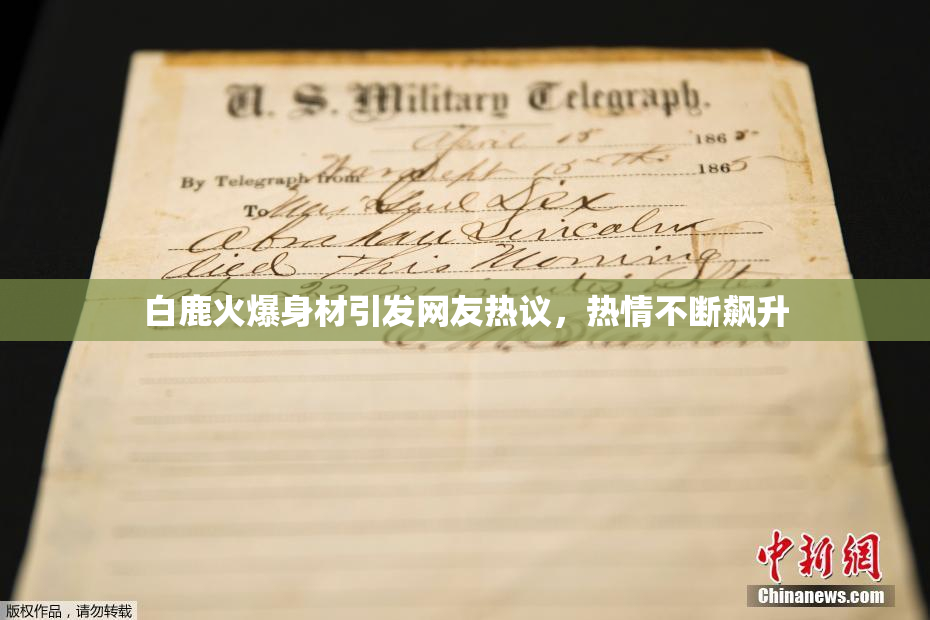 U. S. Military Telegraph.
April 15 1865
By Telegraph from War Dept 15th 1865
To Maj Genl Dix
Abraham Lincoln
died This Morning
at 22 minutes after
白鹿火爆身材引发网友热议，热情不断飙升
E. M. Stanton
中新网
Chinanews.com
版权作品，请勿转载